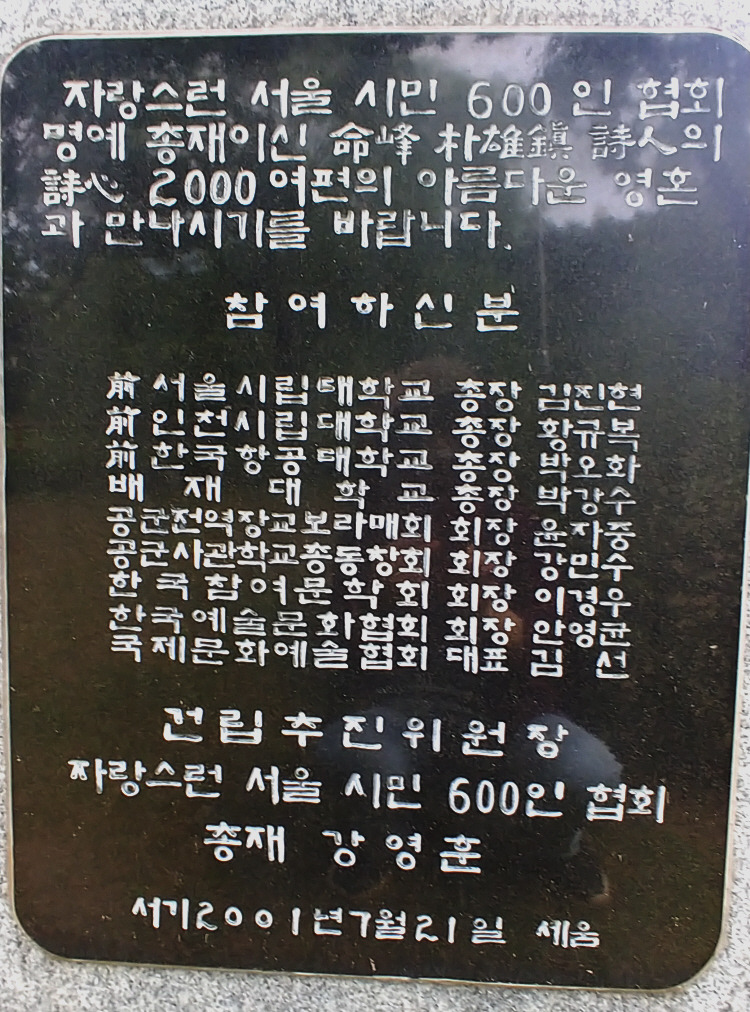 자랑스런 서울 시민 600인 협회
명예 총재이신 命峰 朴雄鎭 詩人의
詩心 2000여편의 아름다운 영혼
과 만나시기를 바랍니다.
참여하신분
前 서울시립대학교 총장 김진현
前 인천시립대학교 총장 황규복
前 한국항공대학교 총장 박오화
배재대학교 총장 박강수
공군전역장교보라매회 회장 윤자중
공군사관학교총동창회 회장 강민수
한국참여문학회 회장 이경우
한국예술문화협회 회장 안영균
국제문화예술협회 대표 김선
건립추진위원장
자랑스런 서울 시민 600인 협회
총재 강영훈
서기2001년7월21일 세움